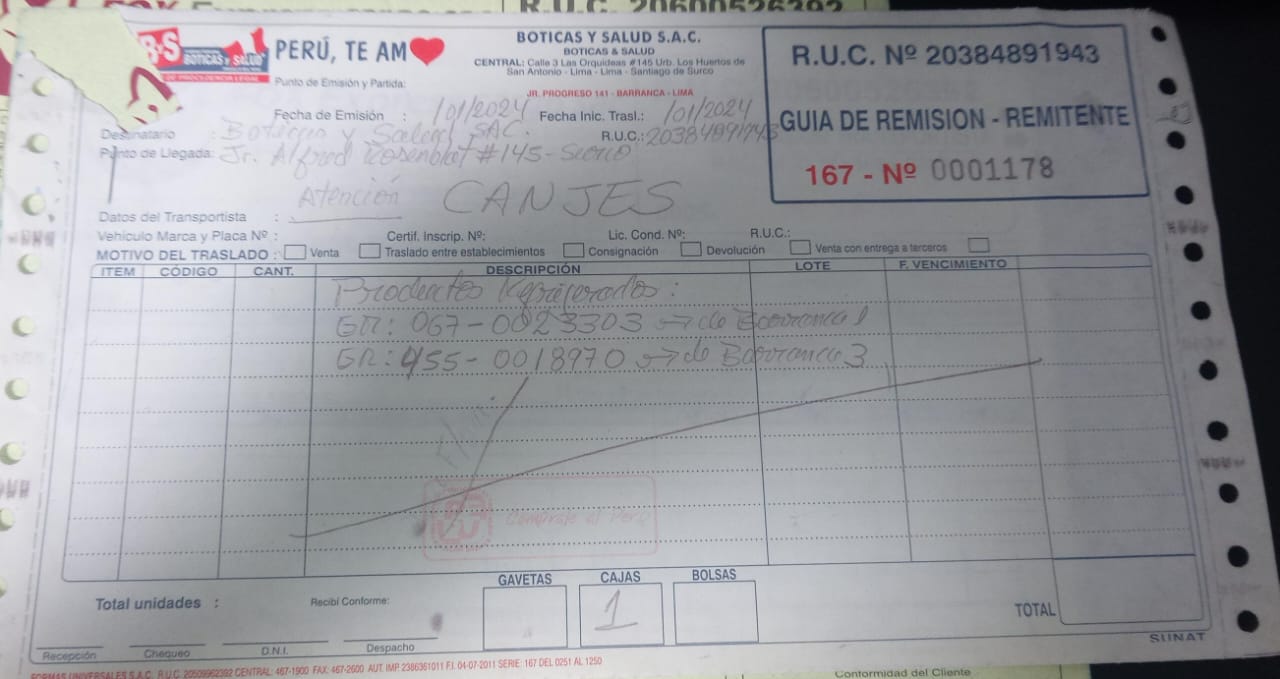 R.U.C. 20600526392
B&S BOTICAS Y SALUD
DE PROCEDENCIA LEGAL
PERÚ, TE AM
BOTICAS Y SALUD S.A.C.
BOTICAS & SALUD
CENTRAL: Calle 3 Las Orquideas #145 Urb. Los Huertos de
San Antonio - Lima - Lima - Santiago de Surco
JR. PROGRESO 141 - BARRANCA - LIMA
R.U.C. Nº 20384891943
GUIA DE REMISION - REMITENTE
167 - Nº 0001178
Punto de Emisión y Partida:
Fecha de Emisión : /01/2024 Fecha Inic. Trasl.: /01/2024
Destinatario : Boticas y Salud SAC. R.U.C.: 20384891943
Punto de Llegada: Jr. Alfred Rosenblat #145-Surco
Atención CANJES
Datos del Transportista :
Vehículo Marca y Placa Nº : Certif. Inscrip. Nº: Lic. Cond. Nº: R.U.C.:
MOTIVO DEL TRASLADO : Venta Traslado entre establecimientos Consignación Devolución Venta con entrega a terceros
ITEM CÓDIGO CANT. DESCRIPCIÓN LOTE F. VENCIMIENTO
Productos Refrigerados:
GR: 067-0023303 → de Barranca 1
GR: 455-0018970 → de Barranca 3
Consúmele al Perú
GAVETAS CAJAS BOLSAS
Total unidades : Recibí Conforme: 1 TOTAL
Recepción Chequeo D.N.I. Despacho
SUNAT
FORMAS UNIVERSALES S.A.C. R.U.C. 20509962392 CENTRAL: 467-1900 FAX: 467-2600 AUT. IMP. 2386361011 F.I. 04-07-2011 SERIE: 167 DEL 0251 AL 1250
Conformidad del Cliente